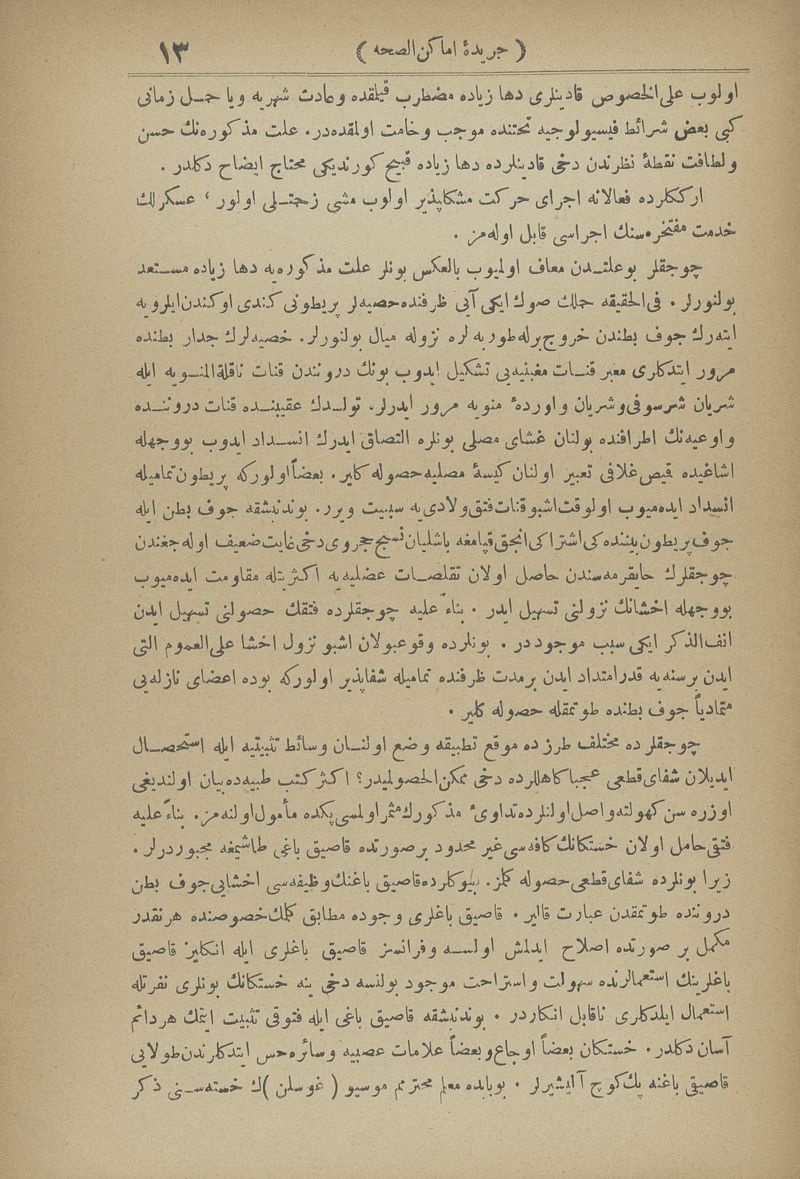 ( جريدۀ اماكن الصحه ) ١٣
اولوب على الخصوص قادينلرى دها زياده مضطرب قيلقده و عادت شهريه ويا حمـل زمانى
كبى بعض شرائط فيسيولوجيه تحتنده موجب وخامت اولمقده در. علت مذكوره نك حسن
ولطافت نقطۀ نظرندن دخى قادينلرده دها زياده قبيح كورنديكى محتاج ايضاح دكلدر .
اركلكلرده فعالانه اجراى حركت مشكلپذير اولوب مشى زحمتـلى اولور ، عسكرلك
خدمت مفتخره سنك اجراسى قابل اوله مز .
چوجقلر بوعلتـدن معاف اولميوب بالعكس بونلر علت مذكوره يه دها زياده مسـتعد
بولنورلر . فى الحقيقه حملك صوك ايكى آيى ظرفنده حصيه لر پريطونى كندى اوكندن ايلرويه
ايته رك جوف بطندن خروج برله طوربه لره نزوله ميال بولنورلر. خصيه لرك جدار بطنده
مرور ايتدكلرى معبر قنـات مغبنيه يى تشكيل ايدوب بونك دروننـدن قنات ناقلة المنـويه ايله
شريان شرسوفى و شريان و اوردۀ منويه مرور ايدرلر. تولـدك عقبينـده قنات دروننـده
واوعيه نك اطرافنده بولنان غشاى مصلى بونلره التصاق ايدرك انسـداد ايدوب بووجهله
اشاغيده قيص غلافى تعبير اولنان كيسۀ مصليه حصوله كلير. بعضاً اولوركه پريطون تماميله
انسداد ايده ميوب اولوقت اشبو قنات فتق ولادى يه سببيت ويرر. بوندنبشقه جوف بطن ايله
جوف پريطون بيننده كى اشتراكى انجق قپامغه باشليان نسيج حجروى دخى غايت ضعيف اوله جغندن
چوجقلرك حايقرمه سندن حاصل اولان تقلصـات عضليه يه اكثريتله مقاومت ايده ميوب
بووجهله اخشانك نزولنى تسهيل ايدر . بناءً عليه چوجقلرده فتقك حصولنى تسهيل ايدن
انف الذكر ايكى سبب موجوددر . بونلرده وقوعبولان اشبو نزول اخشا على العموم التى
ايدن برسنه يه قدر امتداد ايدن برمدت ظرفنده تماميله شفاپذير اولوركه بوده اعضاى نازله يى
متمادياً جوف بطنده طوتمقله حصوله كلير .
چوجقلرده مختلف طرزده موقع تطبيقه وضع اولنـان وسائط تثبيتيه ايله استحصـال
ايديلان شفاى قطعى عجبا كاهللرده دخى ممكن الحصولميدر؟ اكثر كتب طبيه ده بيان اولنديغى
اوزره سن كهولته واصل اولنلرده تداوىء مذكورك مثمر اولمسى پكده مأمول اولنه مز. بناءً عليه
فتقى حامل اولان خستكانك كافه سى غير محدود برصورتده قاصيق باغى طاشيمغه مجبوردرلر .
زيرا بونلرده شفاى قطعى حصوله كلمز. بيوكلرده قاصيق باغنك وظيفه سى اخشايى جوف بطن
دروننده طوتمقدن عبارت قالير . قاصيق باغلرى وجوده مطابق كلمك خصوصنده هرنقدر
مكمل بر صورتده اصلاح ايدلمش اولسـه و فرانسز قاصيق باغلرى ايله انكليز قاصيق
باغلرينك استعماللرنده سهولت و استراحت موجود بولنسه دخى ينه خستكانك بونلرى نفرتله
استعمال ايلدكلرى ناقابل انكاردر . بوندنبشقه قاصيق باغى ايله فتوقى تثبيت ايتمك هردائم
آسان دكلدر. خستكان بعضاً اوجاع و بعضاً علامات عصبيه و سائره حس ايتدكلرندن طولايى
قاصيق باغنه پك كوچ آليشيرلر . بوبابده معلم محترمم موسيو ( غوسلن )ك خسته سـنى ذكر